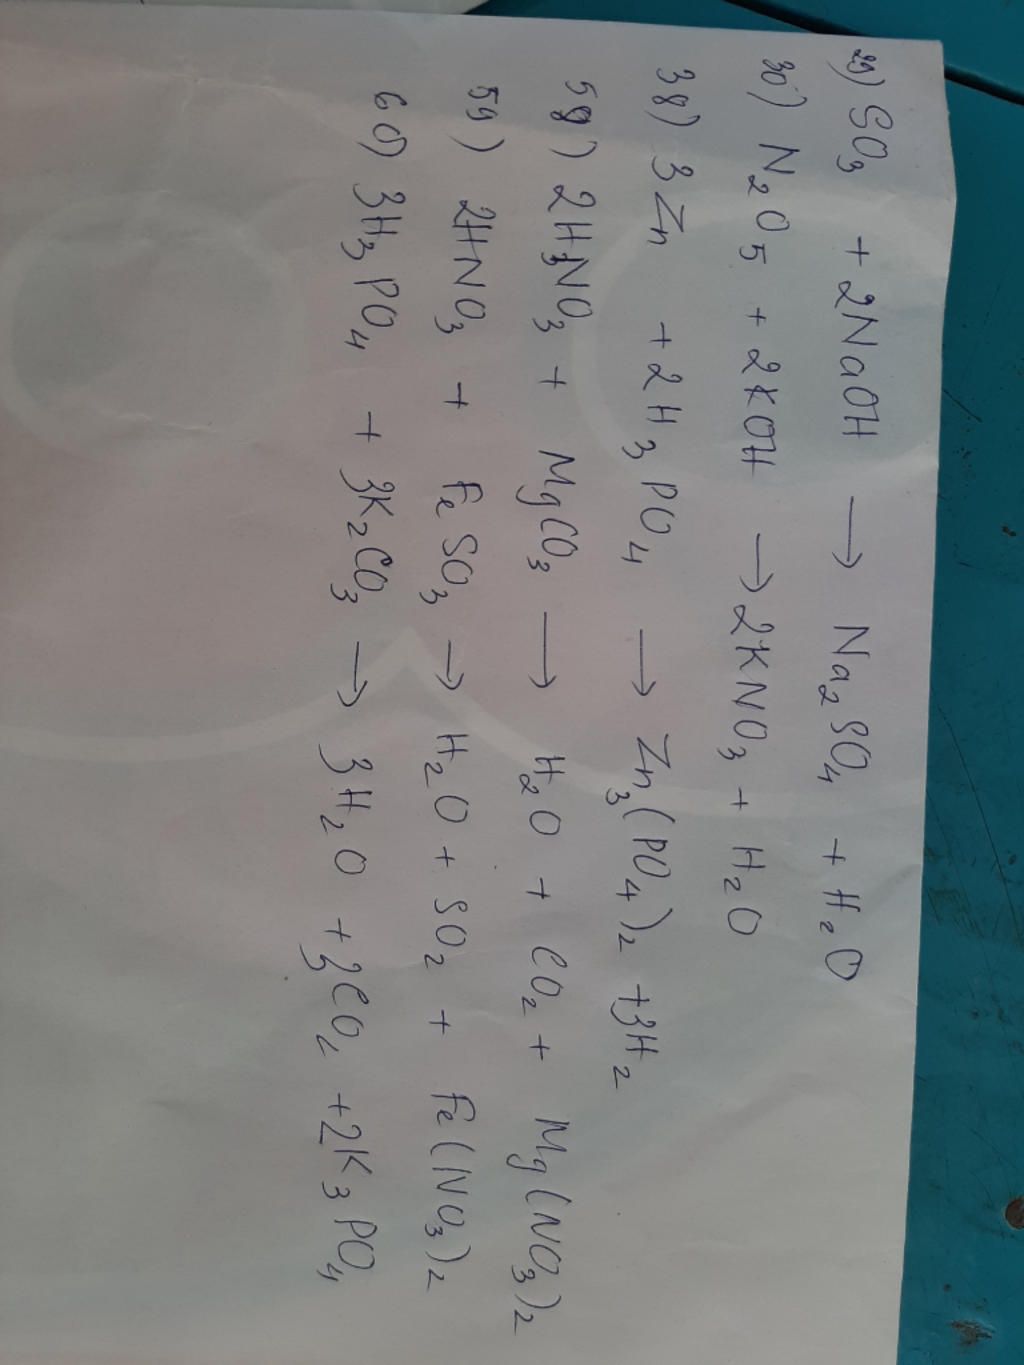 29) SO₃ + 2NaOH → Na₂SO₄ + H₂O
30) N₂O₅ + 2KOH → 2KNO₃ + H₂O
38) 3Zn + 2H₃PO₄ → Zn₃(PO₄)₂ + 3H₂
58) 2HNO₃ + MgCO₃ → H₂O + CO₂ + Mg(NO₃)₂
59) 2HNO₃ + FeSO₃ → H₂O + SO₂ + Fe(NO₃)₂
60) 3H₃PO₄ + 3K₂CO₃ → 3H₂O + 3CO₂ + 2K₃PO₄